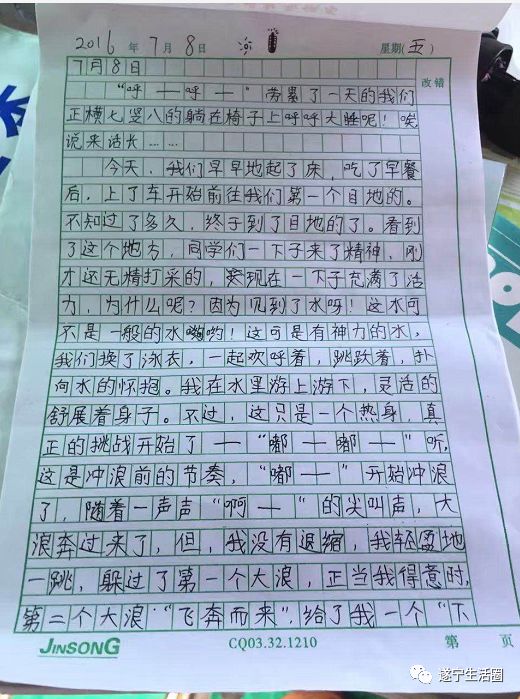 2016 年 7 月 8 日 星期(五)
7月8日 改错
“呼——呼——”劳累了一天的我们
正横七竖八的躺在椅子上呼呼大睡呢！唉
说来话长……
今天，我们早早地起了床，吃了早餐
后，上了车开始前往我们第一个目地的。
不知过了多久，终于到了目地的了。看到
了这个地方，同学们一下子来了精神，刚
才还无精打采的，现在一下子充满了活
力，为什么呢？因为见到了水呀！这水可
不是一般的水哟！这可是有神力的水，
我们换了泳衣，一起欢呼着，跳跃着，扑
向水的怀抱。我在水里游上游下，灵活的
舒展着身子。不过，这只是一个热身，真
正的挑战开始了——“嘟——嘟——”听，
这是冲浪前的节奏，“嘟——”开始冲浪
了，随着一声声“啊——”的尖叫声，大
浪奔过来了，但，我没有退缩，我轻盈地
一跳，躲过了第一个大浪，正当我得意时，
第二个大浪“飞奔而来”，给了我一个“下
JINSONG CQ03.32.1210 第 页
遂宁生活圈